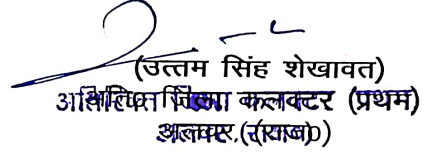 (उत्तम सिंह शेखावत)
अतिरिक्त जिला कलक्टर (प्रथम)
अलवर (राज0)